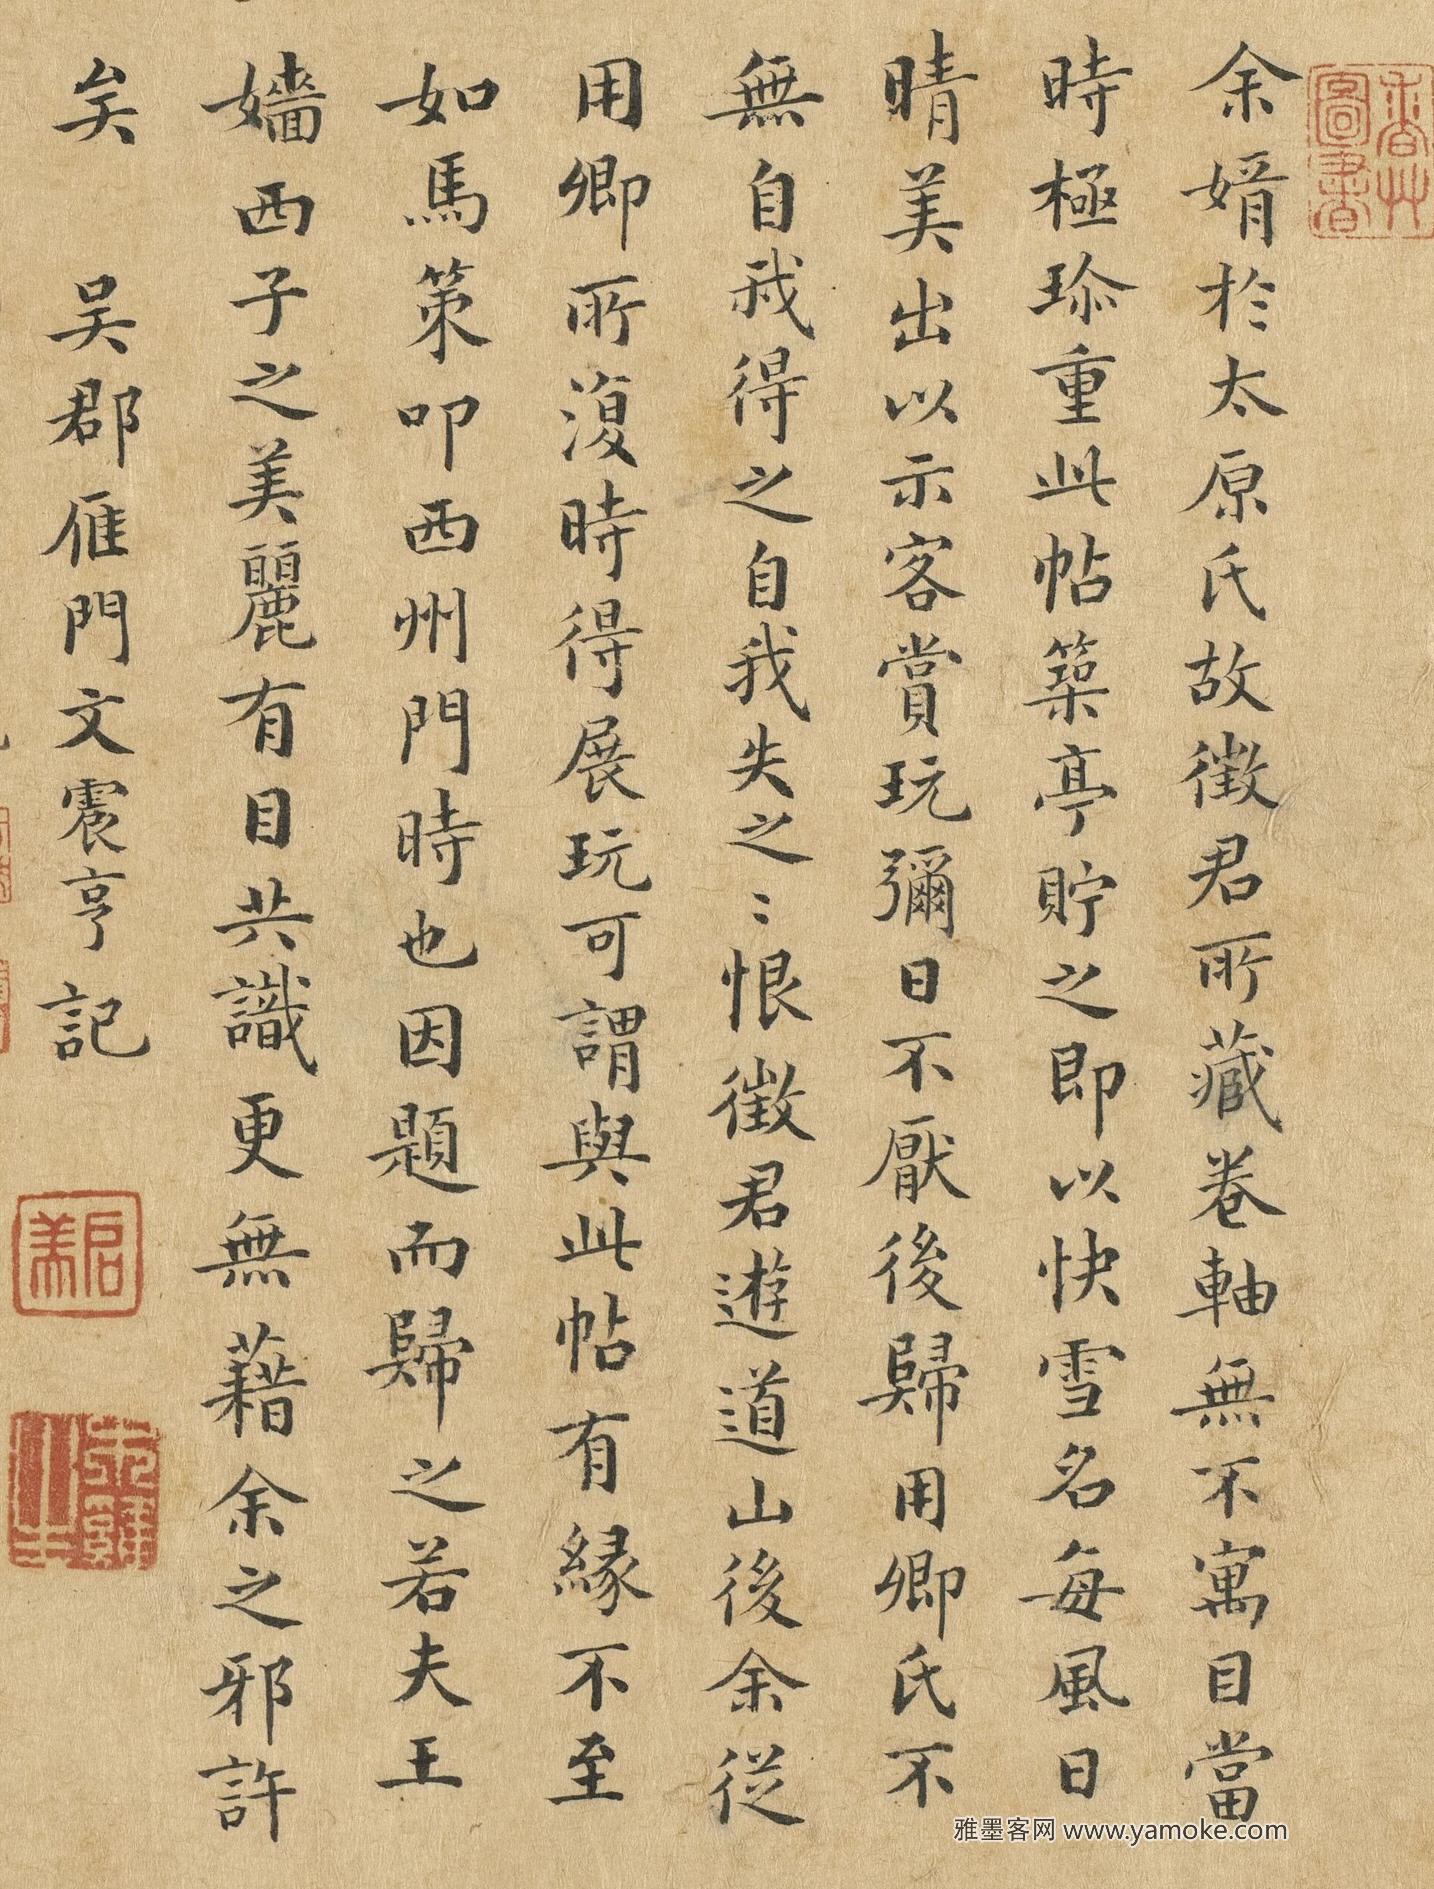 香艸圖書
余婿於太原氏故徵君所藏卷軸無不寓目當
時極珎重此帖築亭貯之即以快雪名每風日
晴美出以示客賞玩彌日不厭後歸用卿氏不
無自我得之自我失之〻恨徵君遊道山後余從
用卿所復時得展玩可謂與此帖有緣不至
如馬策叩西州門時也因題而歸之若夫王
嬙西子之美麗有目共識更無藉余之邪許
矣 吳郡雁門文震亨記
啟美
雅墨客网 www.yamoke.com